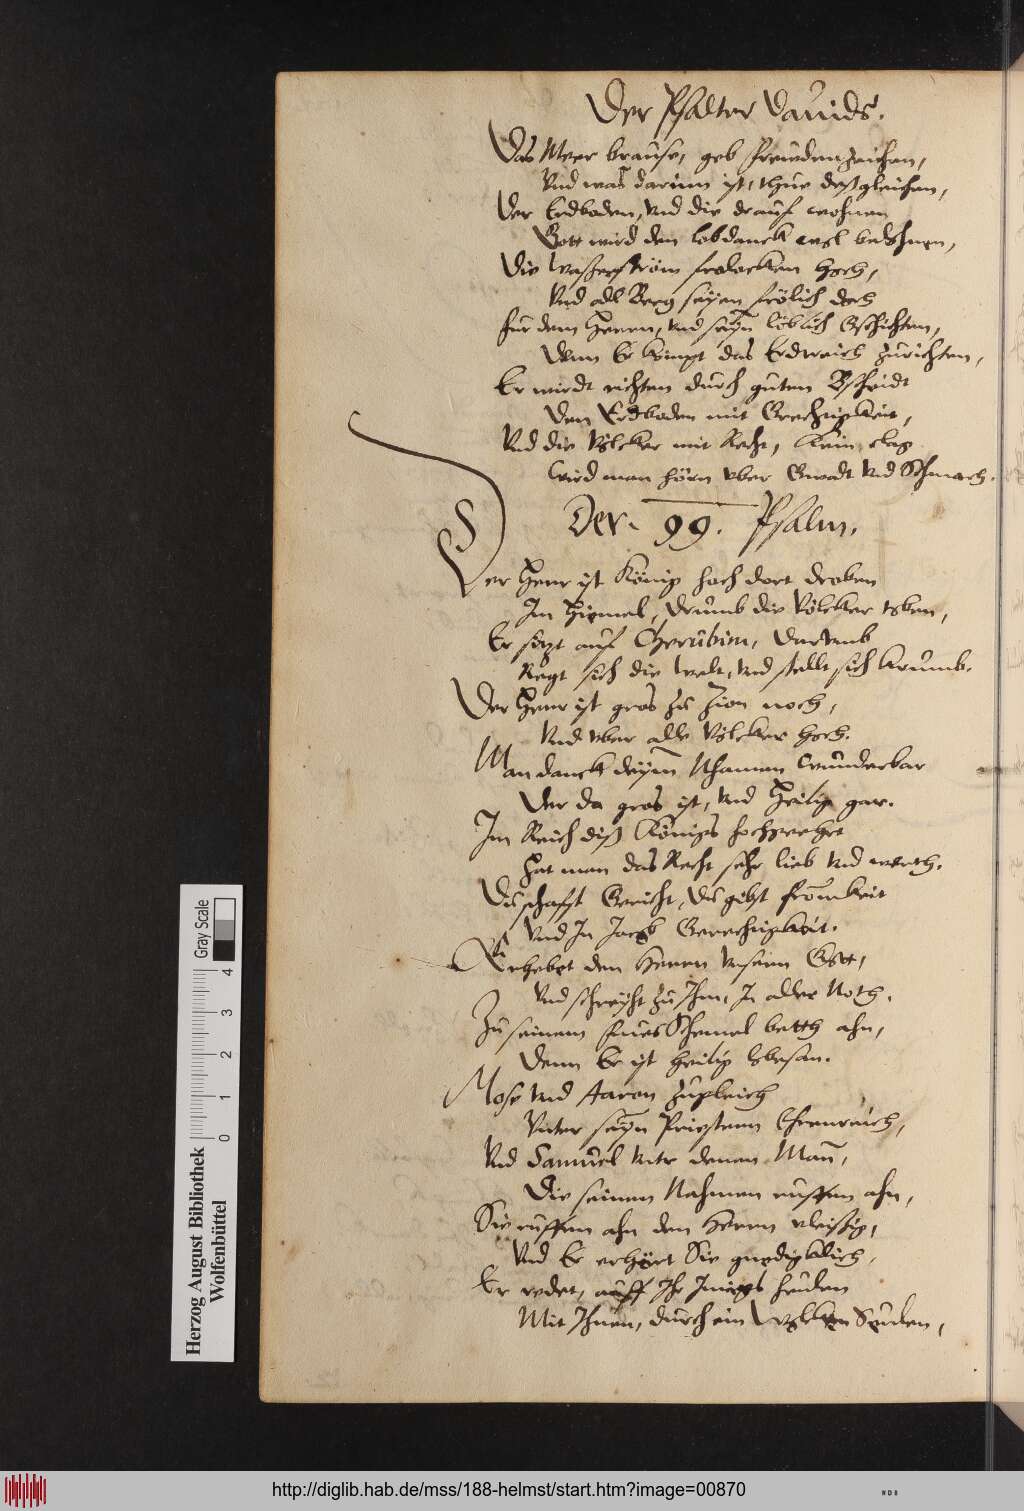 Der Psalter Dauids.
Das Meer brause, geb freudenzeichen,
Vnd was darinn ist, thue desgleichen,
Der Erdboden, vnd die drauf wohnen
Gott wird den lobdanck wol belohnen,
Die Wasserström frolocken hoch,
Vnd all Berg seyen frölich doch
Fur dem Herrn, vnd seyn löblich Gschichten,
Denn Er kompt das Erdreich zurichten,
Er wirdt richten durch guten Bscheidt
Den Erdboden mit Grechtigkeit,
Vnd die Völcker mit Recht, kein clag
Wird man hörn vber Gwalt vnd Schmach.
Der. 99. Psalm.
Der Herr ist König hoch dort droben
Im Himel, drumb die Völcker toben,
Er sitzt auf Cherubim, darumb
Regt sich die Welt, vnd stellt sich krumb.
Der Herr ist gros zu Zion noch,
Vnd vber alle Völcker hoch.
Man danck deim Nhamen wunderbar
Der da gros ist, vnd heilig gar.
Im Reich diß Königs hochgeehrt
Hat man das Recht sehr lieb vnd werth.
Du schaffst Gericht, du gibst fromkeit
Vnd In Jacob Gerechtigkeit.
Erhebet den Herrn vnsern Gott,
Vnd schreyht zu Ihm, In aller Noth.
Zu seinem fues Schemel betth ahn,
Denn Er ist heilig lobesan.
Mose vnd Aaron zugleich
Vnter seyn Priestern Ehrenreich,
Vnd Samuel vntr denen Man,
Die seinen Nahmen ruffen ahn,
Sie ruffen ahn den Herrn vleissig,
Vnd Er erhört Sie gnedigklich,
Er redet, auff Ihr Innigs heulen
Mit Ihnen, durch ein Wolcken Seulen,
Gray Scale
0 1 2 3 4
Herzog August Bibliothek
Wolfenbüttel
http://diglib.hab.de/mss/188-helmst/start.htm?image=00870